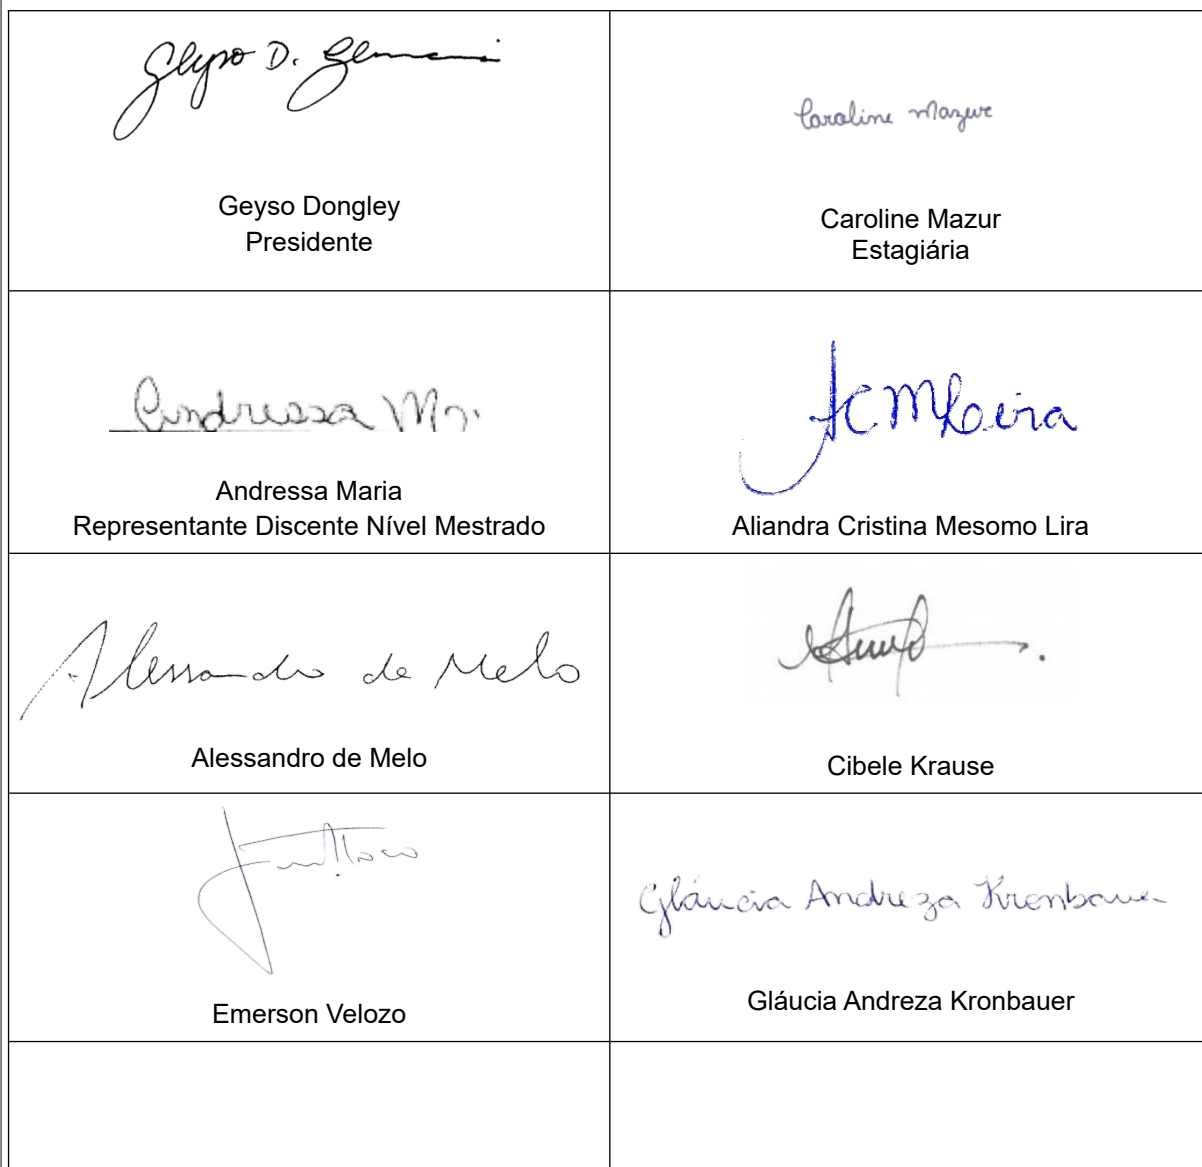 Geyso D. Germani
Geyso Dongley
Presidente
Caroline Mazur
Caroline Mazur
Estagiária
Andressa M
Andressa Maria
Representante Discente Nível Mestrado
ACMLira
Aliandra Cristina Mesomo Lira
Alessandro de Melo
Alessandro de Melo
Cibele Krause
Emerson Velozo
Gláucia Andreza Kronbauer
Gláucia Andreza Kronbauer